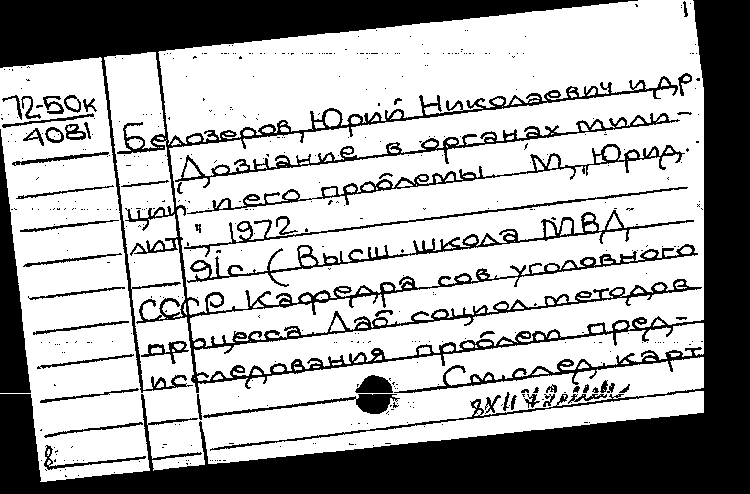 1
72-БОк
4081
Белозеров, Юрий Николаевич и др.
Дознание в органах мили-
ции и его проблемы. М., "Юрид.
лит.", 1972.
91с. (Высш. школа МВД
СССР. Кафедра сов. уголовного
процесса. Лаб. социол. методов
исследования проблем пред-
См. след. карт
8